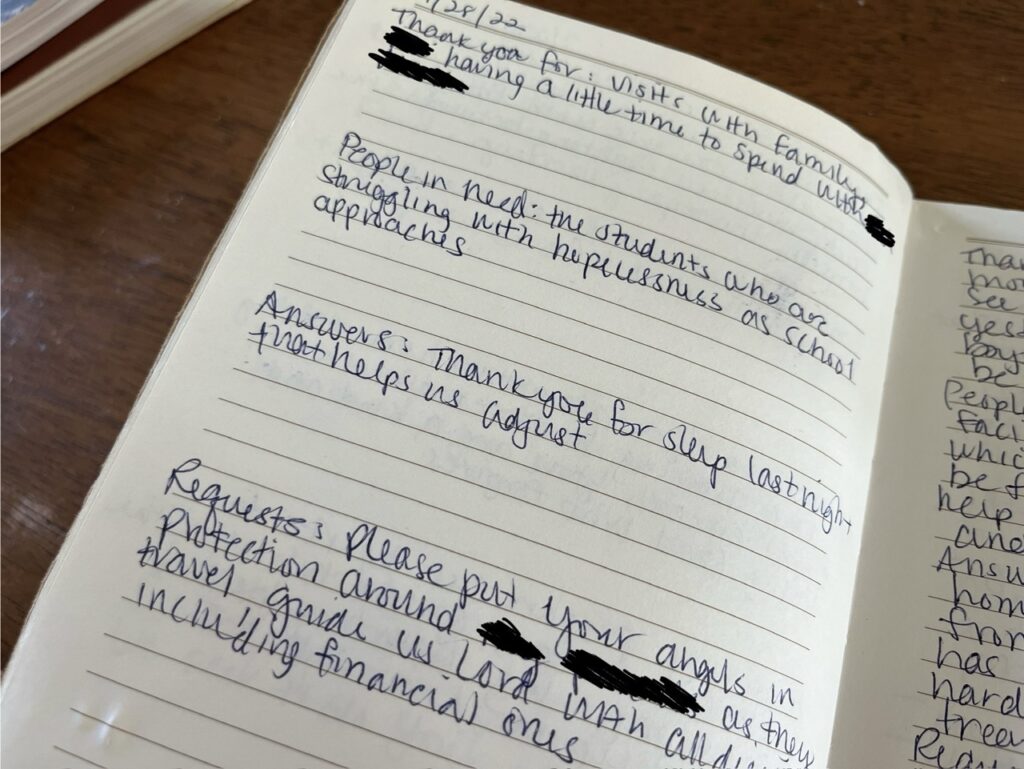 /28/22
Thank you for: visits with family
having a little time to spend with
People in need: the students who are
struggling with hopelessness as school
approaches
Answers: Thank you for sleep last night
that helps us adjust
Requests: please put your angels in
protection around as they
travel guide us Lord with all
including financial ones
Than
mor
see
yes
boy
be
People
faci
whic
be f
help
and
Answ
hom
from
has
hard
treev
Requ